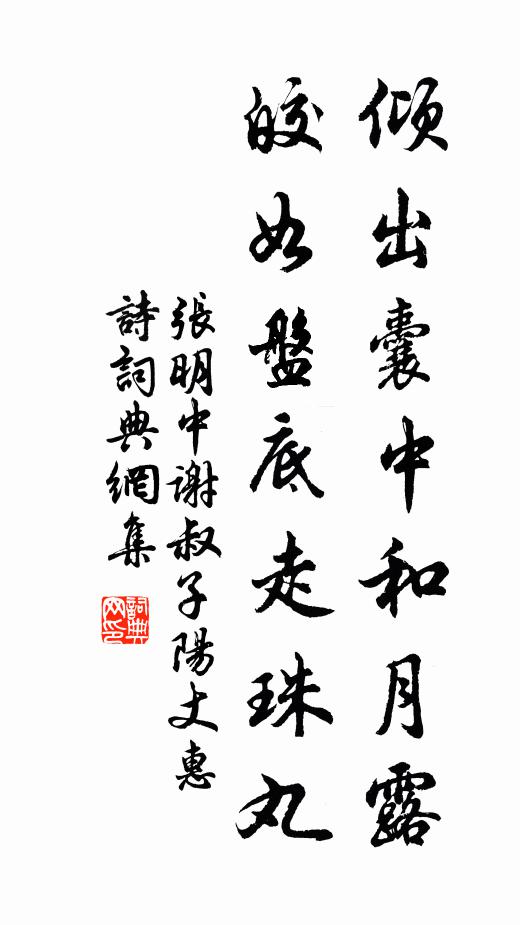 傾出囊中和月露
皎如盤底走珠丸
張明中謝叔子陽丈惠
詩詞典網集
詞典
网印